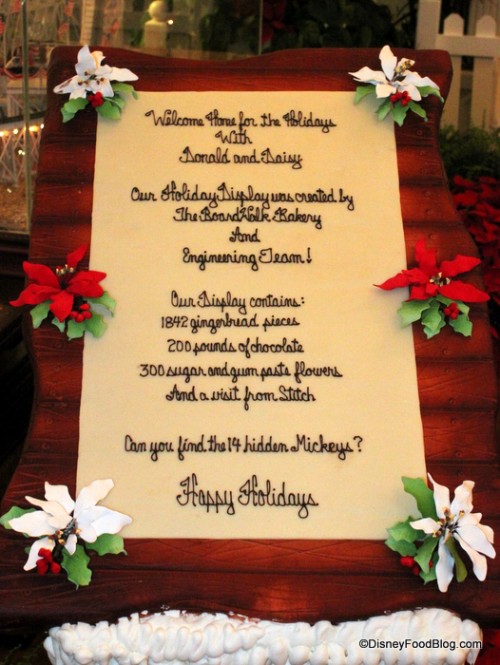 Welcome Home for the Holidays
With
Donald and Daisy
Our Holiday Display was created by
The BoardWalk Bakery
And
Engineering Team!
Our Display contains:
1842 gingerbread pieces
200 pounds of chocolate
300 sugar and gum paste flowers
And a visit from Stitch
Can you find the 14 hidden Mickeys?
Happy Holidays
©DisneyFoodBlog.com